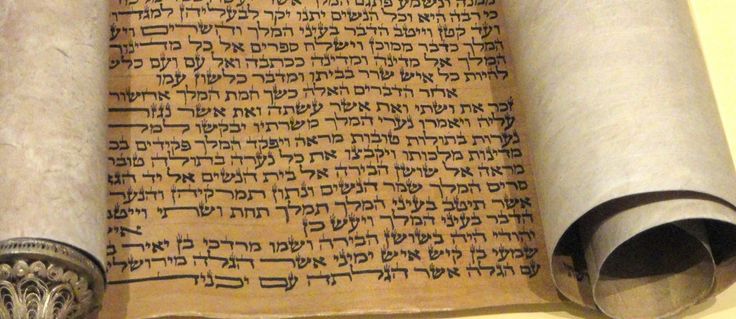 ממנה ונשמע פתגם המלך אשר
כי רבה היא וכל הנשים יתנו יקר לבעליהן למגדול
ועד קטן וייטב הדבר בעיני המלך והשרים ויעש
המלך כדבר ממוכן וישלח ספרים אל כל מדינות
המלך אל מדינה ומדינה ככתבה ואל עם ועם
להיות כל איש שרר בביתו ומדבר כלשון עמו
אחר הדברים האלה כשך חמת המלך
זכר את ושתי ואת אשר עשתה ואת אשר נגזר
עליה ויאמרו נערי המלך משרתיו יבקשו למלך
נערות בתולות טובות מראה ויפקד המלך פקידים
מדינות מלכותו ויקבצו את כל נערה בתולה
מראה אל שושן הבירה אל בית הנשים אל יד הגא
סריס המלך שמר הנשים ונתון תמרקיהן והנערה
אשר תיטב בעיני המלך תמלך תחת ושתי וייטב
הדבר בעיני המלך ויעש כן
יהודי היה בשושן הבירה ושמו מרדכי בן יאיר
שמעי בן קיש איש ימיני אשר הגלה
עם הגלה אשר הגלתה עם יכניה